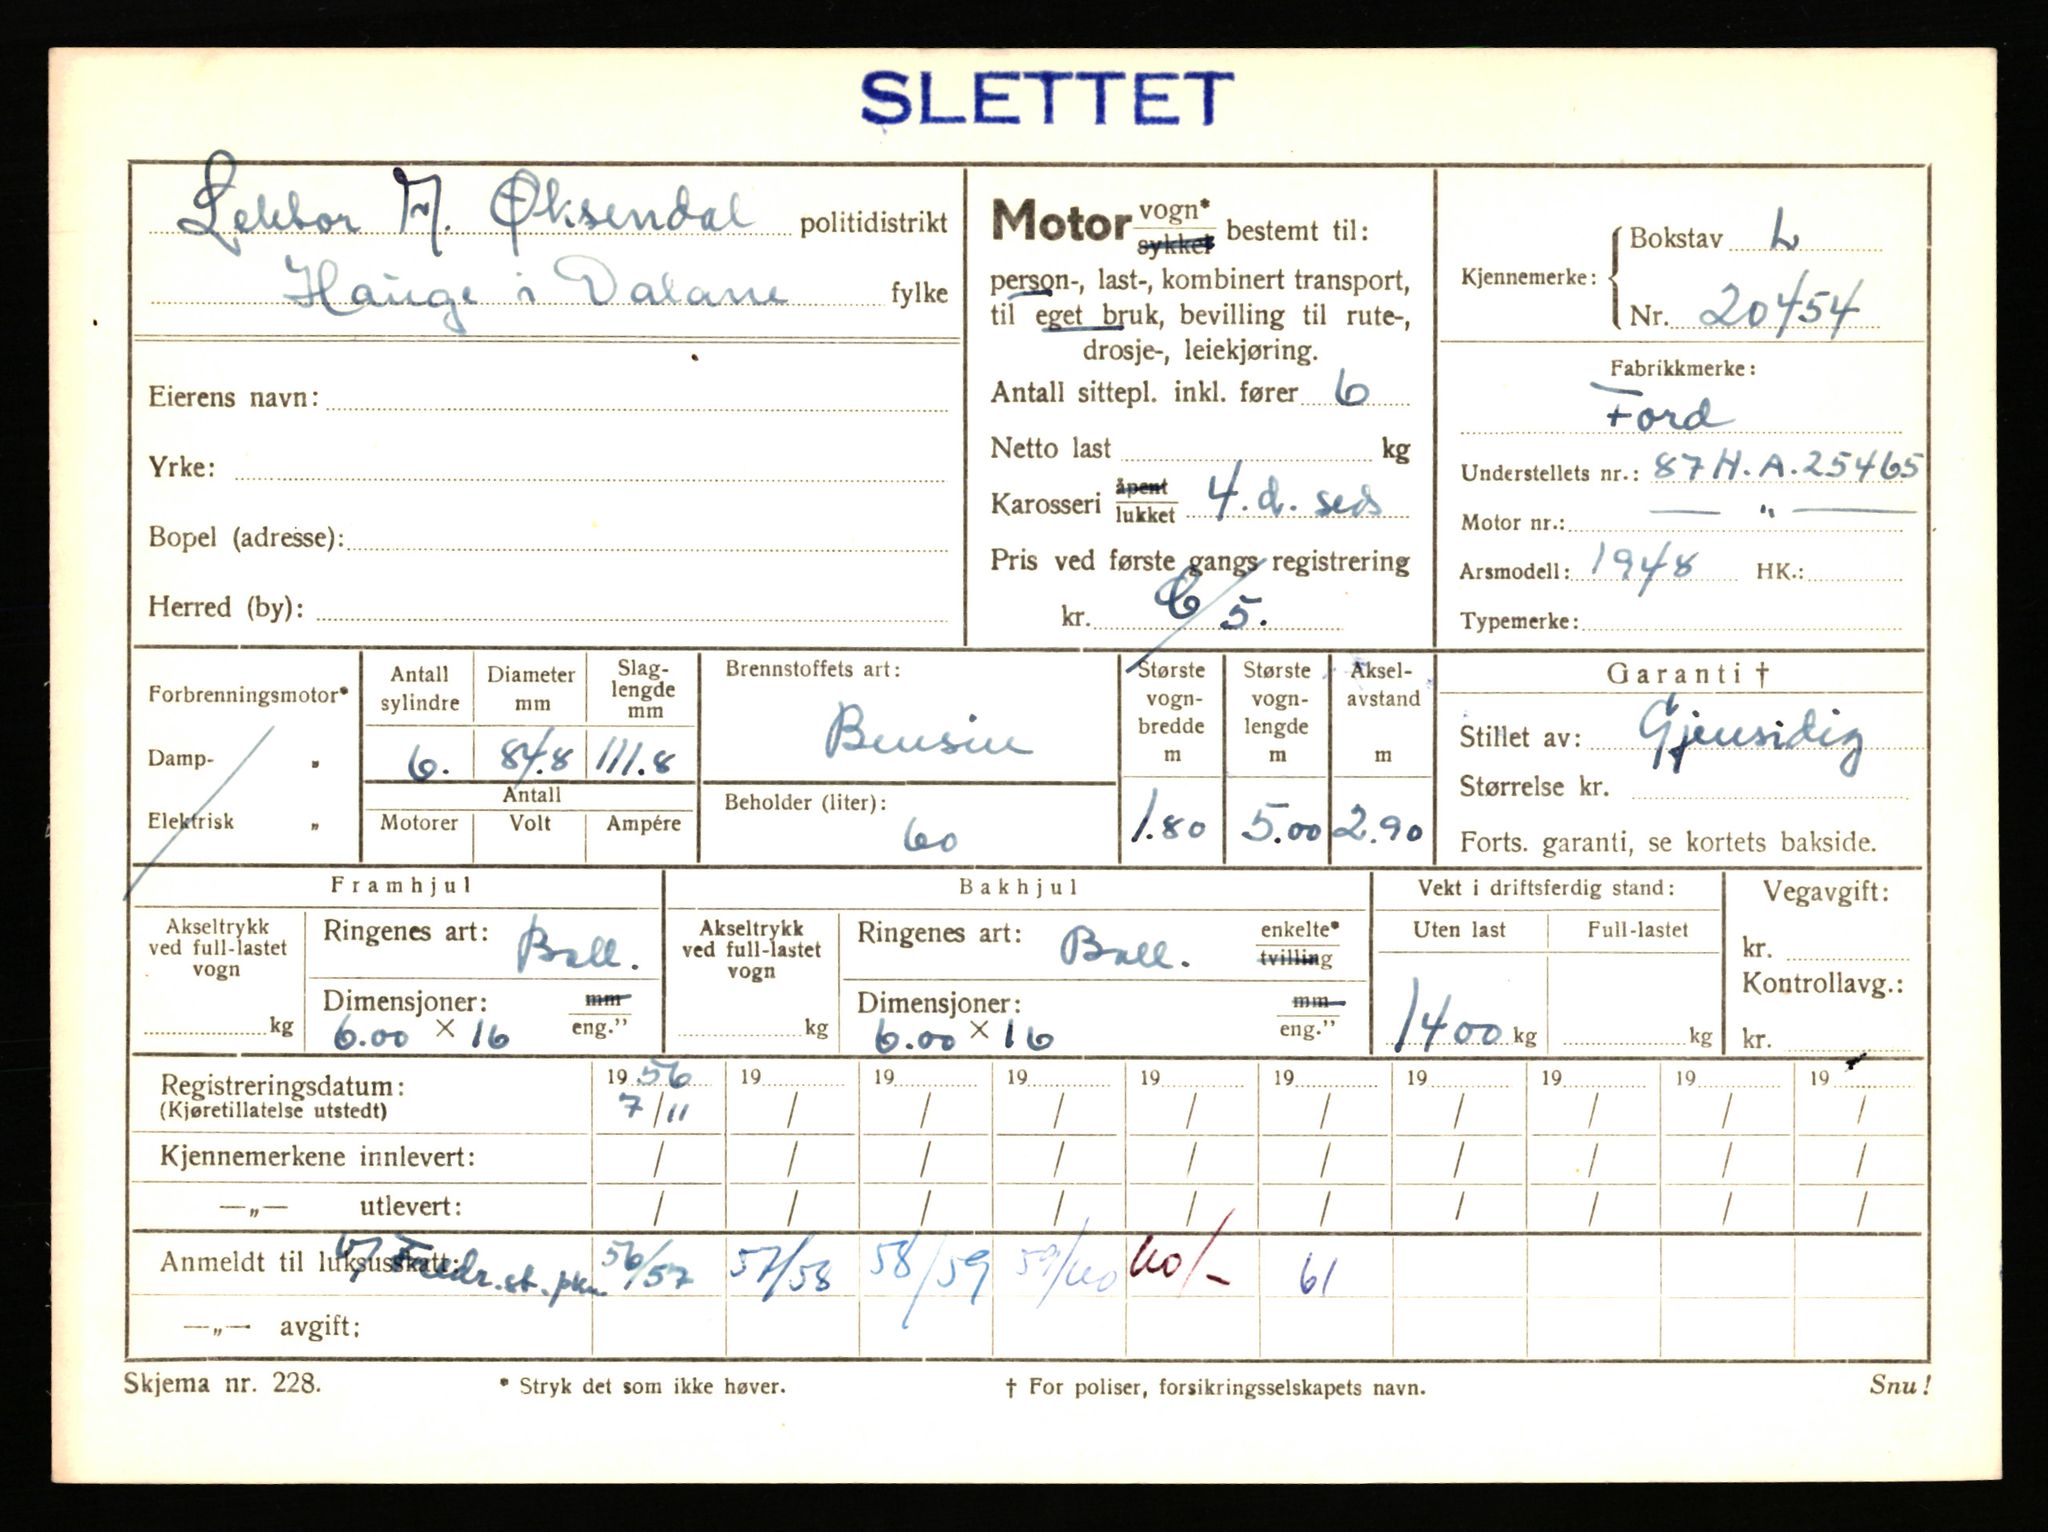 SLETTET
Lektor M. Øksendal politidistrikt
Hauge i Dalane fylke
Eierens navn:
Yrke:
Bopel (adresse):
Herred (by):
Motor vogn* sykkel bestemt til:
person-, last-, kombinert transport,
til eget bruk, bevilling til rute-,
drosje-, leiekjøring.
Antall sittepl. inkl. fører 6
Netto last kg
Karosseri åpent lukket 4. d. sed
Pris ved første gangs registrering
kr. 5.
Kjennemerke: Bokstav L
Nr. 20454
Fabrikkmerke:
Ford
Understellets nr.: 87H.A.25465
Motor nr.: — " —
Arsmodell: 1948 HK.:
Typemerke:
Forbrenningsmotor*
Damp- „
Elektrisk „
Antall sylindre
Diameter mm
Slag-lengde mm
6. 84.8 111.8
Antall
Motorer Volt Ampére
Brennstoffets art:
Bensin
Beholder (liter):
60
Største vogn-bredde m
1.80
Største vogn-lengde m
5.00
Aksel-avstand m
2.90
Garanti †
Stillet av: Gjensidig
Størrelse kr.
Forts. garanti, se kortets bakside.
Framhjul
Akseltrykk ved full-lastet vogn
kg
Ringenes art: Ball.
Dimensjoner: mm
6.00 × 16 eng.”
Bakhjul
Akseltrykk ved full-lastet vogn
kg
Ringenes art: Ball. enkelte* tvilling
Dimensjoner: mm
6.00 × 16 eng.”
Vekt i driftsferdig stand:
Uten last Full-lastet
1400 kg kg
Vegavgift:
kr.
Kontrollavg.:
kr.
Registreringsdatum: 19 56 19 19 19 19 19 19 19 19 19
(Kjøretillatelse utstedt) 7/11 / / / / / / / / /
Kjennemerkene innlevert: / / / / / / / / / /
—„— utlevert: / / / / / / / / / /
Anmeldt til luksusskatt: 56/57 57/58 58/59 59/60 60/- 61
—„— avgift:
Skjema nr. 228. * Stryk det som ikke høver. † For poliser, forsikringsselskapets navn. Snu!